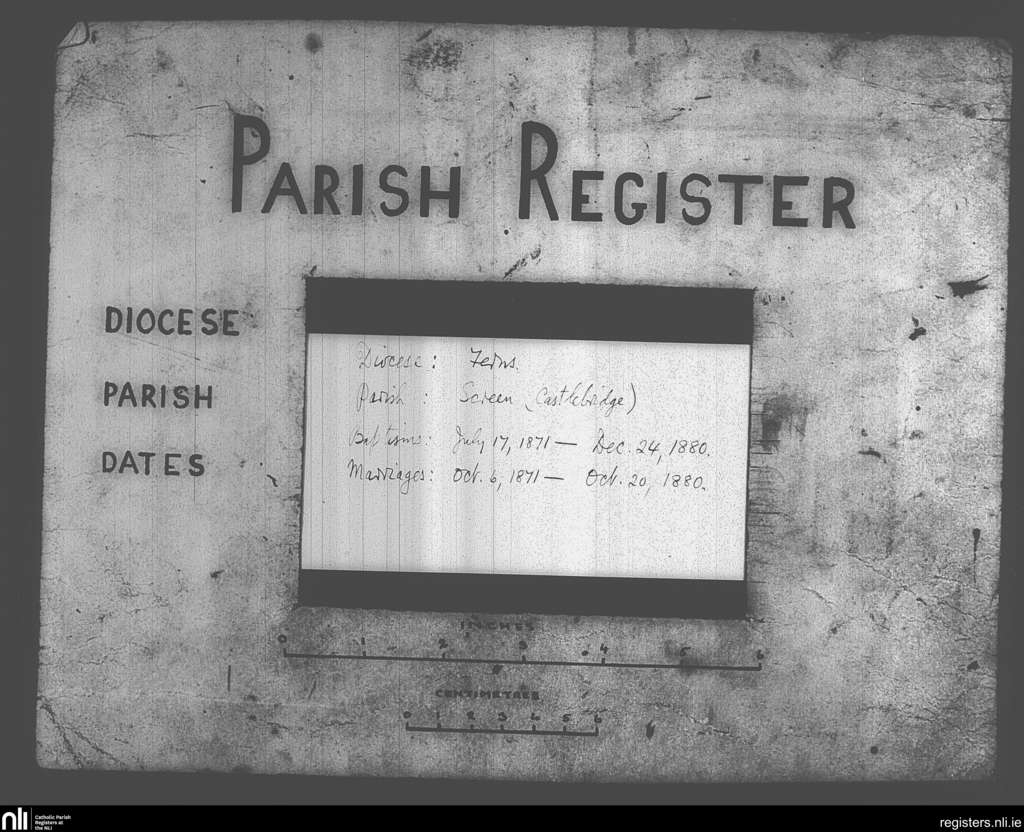 PARISH REGISTER
DIOCESE
PARISH
DATES
Diocese: Ferns.
Parish: Screen (Castlebridge)
Baptisms: July 17, 1871 — Dec. 24, 1880.
Marriages: Oct. 6, 1871 — Oct. 20, 1880.
INCHES
0 1 2 3 4 5 6
CENTIMETRES
0 1 2 3 4 5 6
nli Catholic Parish
Registers at
the NLI
registers.nli.ie